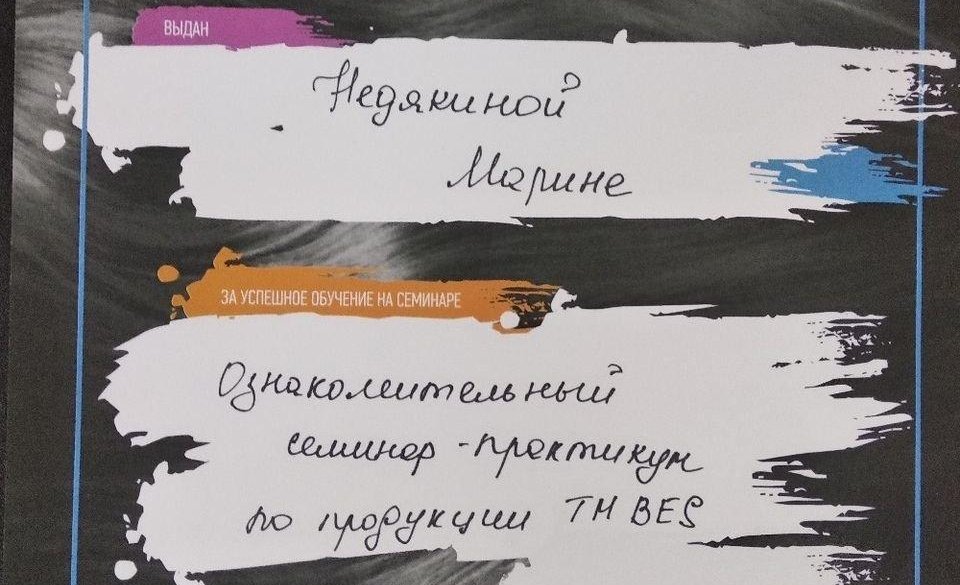 ВЫДАН
Недякиной
Марине
ЗА УСПЕШНОЕ ОБУЧЕНИЕ НА СЕМИНАРЕ
Ознакомительный
семинар - практикум
по продукции ТМ BES